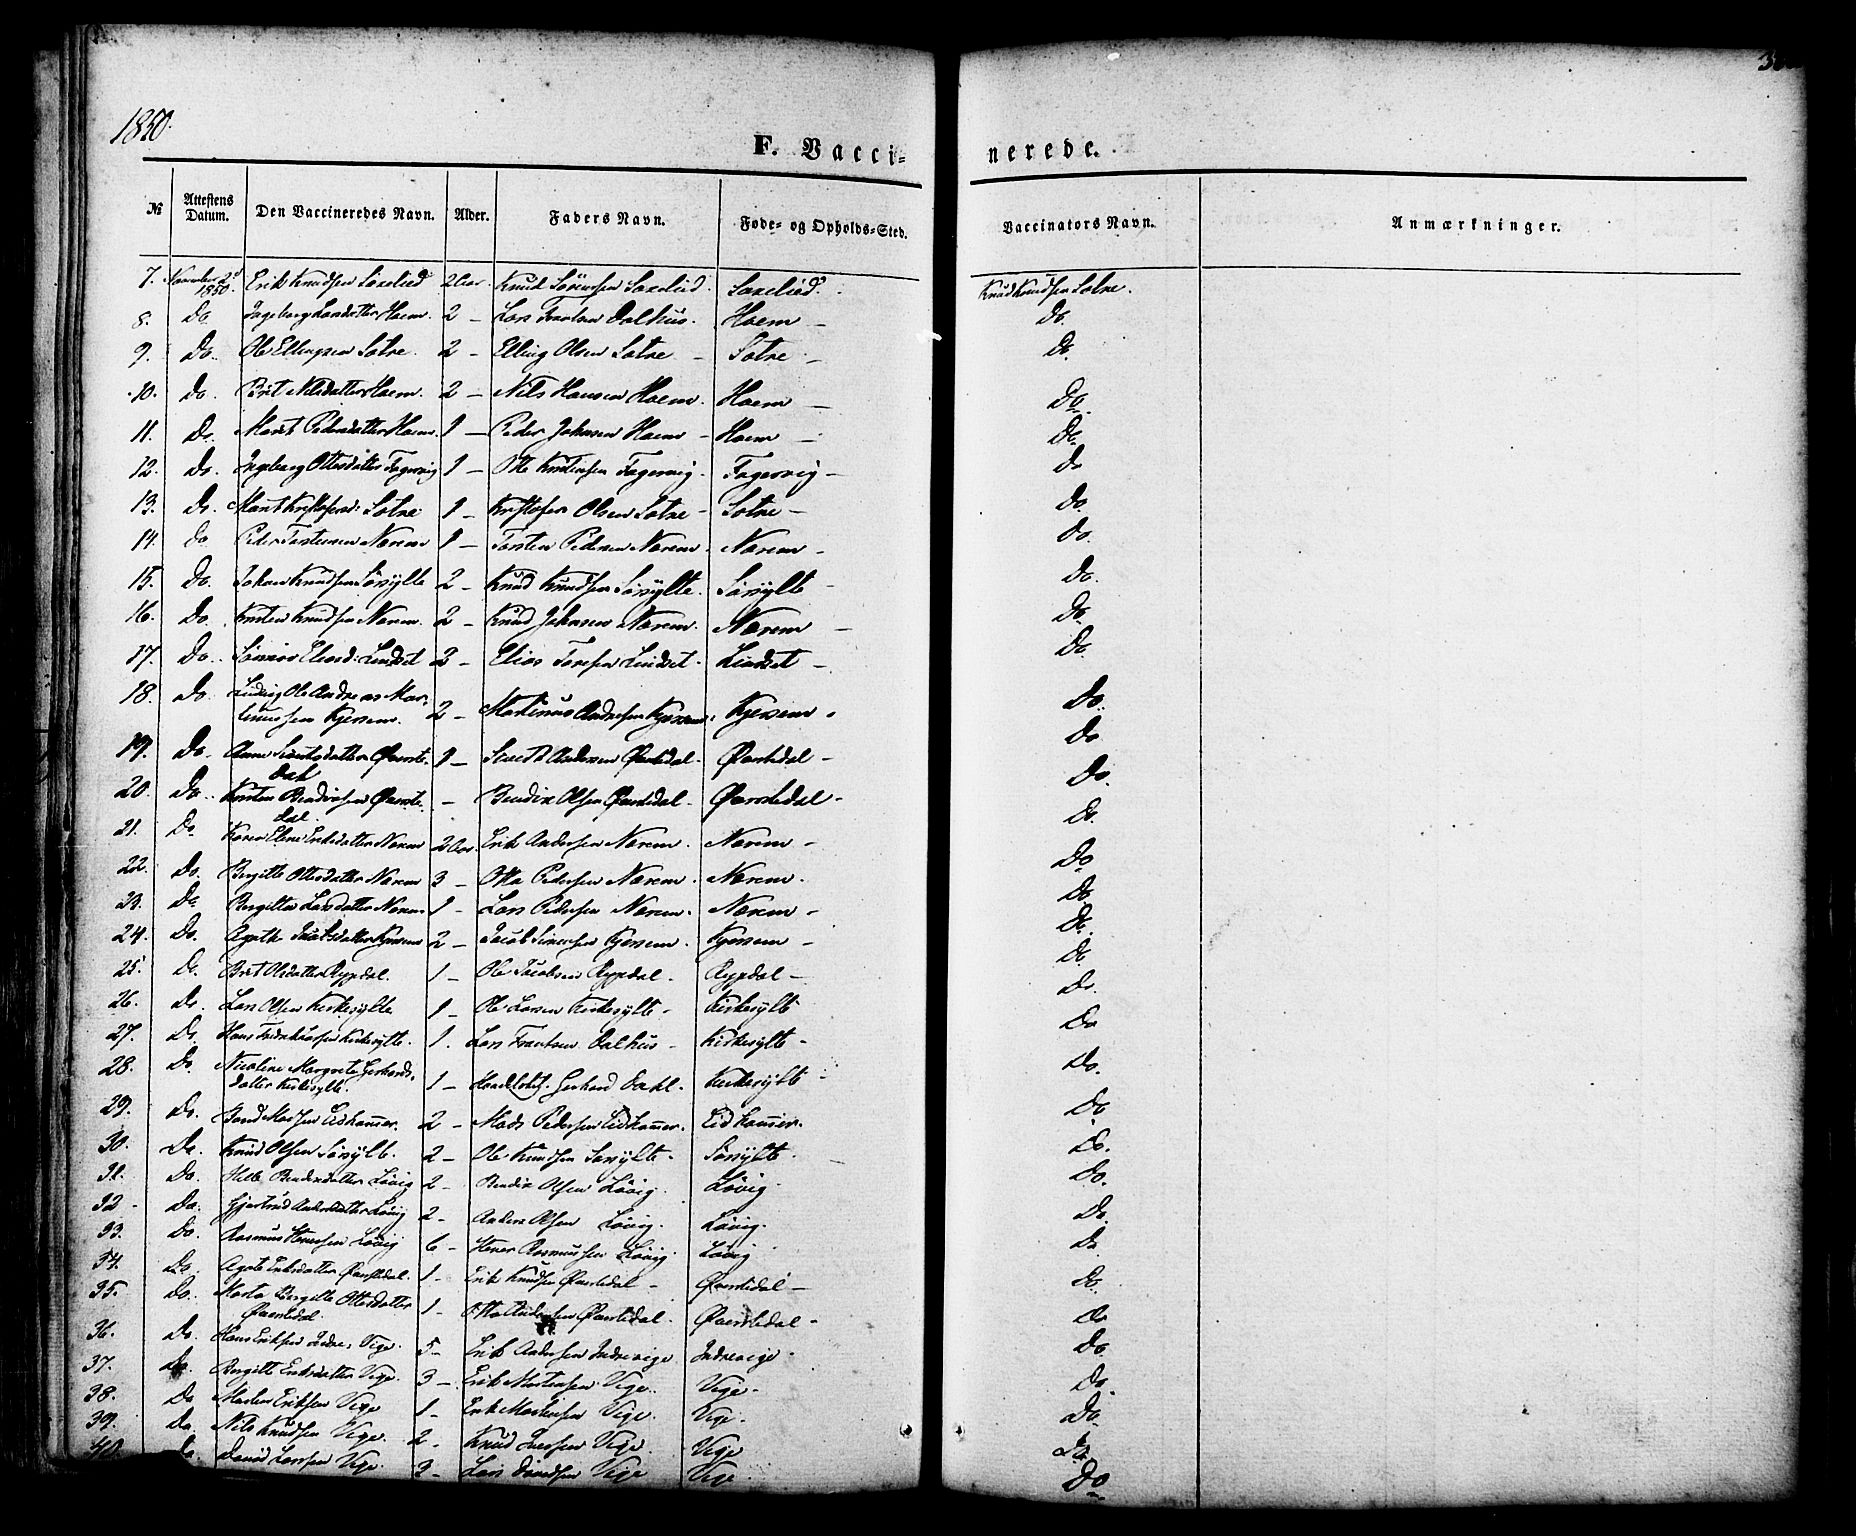 1850.
F. Vacci=
nerede.
№ Attestens Datum. Den Vaccineredes Navn. Alder. Faders Navn. Føde= og Opholds=Sted. Vaccinators Navn. Anmærkninger.
7. November 1850. Erik Knudsen Soxelied 2 Aar. Knud Sörensen Soxelied. Soxelied. Knud Knudsen Solne.
8. Do. Ingeborg Larsdatter Haem. 2 - Lars Frantsen Dalhus. Haem - Do.
9. Do. Ole Ellingsen 2 - Elling Olsen Do.
10. Do. Berit Nilsdatter Haem. 2 - Nils Hansen Haem. Haem - Do.
11. Do. Marit Pedersdatter Haem. 1 - Peder Johnsen Haem - Haem - Do.
12. Do. Ingeborg Ottesdatter Fagervig 1 - Otte Knudsen Fagervig. Fagervig - Do
13. Do. Marit Kristofersd: 1 - Kristofer Olsen Do.
14. Do Peder Torstensen Nærem 1 - Torsten Pedersen Nærem. Nærem - Do.
15. Do. Johan Knudsen Sörsylte 2 - Knud Knudsen Sörsylte. Sörsylte - Do.
16. Do. Knudsen Nærem. 2 - Knud Johnsen Nærem. Nærem - Do.
17. Do. Eliasd: Lindset 2 - Elias Lindset. Lindset - Do.
18. Do. Ludvig Ole Andreas Mar-
tinussen Kjersem. 2 - Martinus Andersen Kjersem. Kjersem - Do.
19. Do. Anne Sivertsdatter Øverste-
dal 1 - Sivert Andersen Øvstedal. Øvstedal - Do
20. Do. Bendixsen Øverste-
dal. - Bendix Olsen Øvstedal - Øvstedal - Do.
21. Do. Karen Elene Eriksdatter Nærem 2 Aar. Erik Andersen Nærem. Nærem - Do.
22. Do. Bergitte Ottesdatter Nærem 3 - Otte Pedersen Nærem. Nærem. Do
23. Do. Larsdatter Nærem 1 - Lars Pedersen Nærem. Nærem - Do
24. Do. Agathe Jacobsdatter Kjersem 2 - Jacob Kjersem. Kjersem - Do.
25. Do. Berit Olsdatter Rypdal. 1 - Ole Jacobsen Rypdal - Rypdal - Do.
26. Do. Lars Olsen Kirkesylte 1 - Ole Larsen Kirkesylte - Kirkesylte Do.
27. Do. Hans Kirkesylte. 1. Lars Frantsen Dalhus - Kirkesylte - Do
28. Do. Nicoline Margrete Gerhards-
datter Kirkesylte. 1 - Gerhard Dahl. Kirkesylte - Do.
29. Do. Madsen Eidhamer. 2 - Mads Pedersen Eidhamer. Eidhamer. Do
30. Do. Knud Olsen Sörsylte. 2 - Ole Knudsen Sörsylte - Sörsylte. Do.
31. Do. Bendixdatter Lövig 2 - Bendix Olsen Lövig. Lövig. Do.
32 - Do. Gjertrud Andersdatter Lövig 2 - Anders Olsen Lövig. Lövig. Do.
33. Do. Rasmus Lövig 6 - Rasmussen Lövig. Lövig Do
34. Do. Agate Eriksdatter Øvstedal. 1 - Erik Knudsen Øvstedal - Øvstedal - Do.
35. Do. Marta Bergitte Ottersdatter
Øverstedal. 1 - Andersen Øvstedal. Øvstedal - Do
36. Do. Hans Eriksen Indre, Vige. 5 - Erik Andersen Indrevige Indrevige. Do
37. Do. Bergitte Eriksdatter Vige. 3 - Erik Mortensen Vige. Vige. Do.
38. Do Eriksen Vige 1 - Erik Mortensen Vige. Vige. Do
39. Do. Nils Knudsen Vige. 2 - Knud Vige. Vige Do.
40. Do. David Larssen Vige. 3 - Lars Davidsen Vige Vige Do